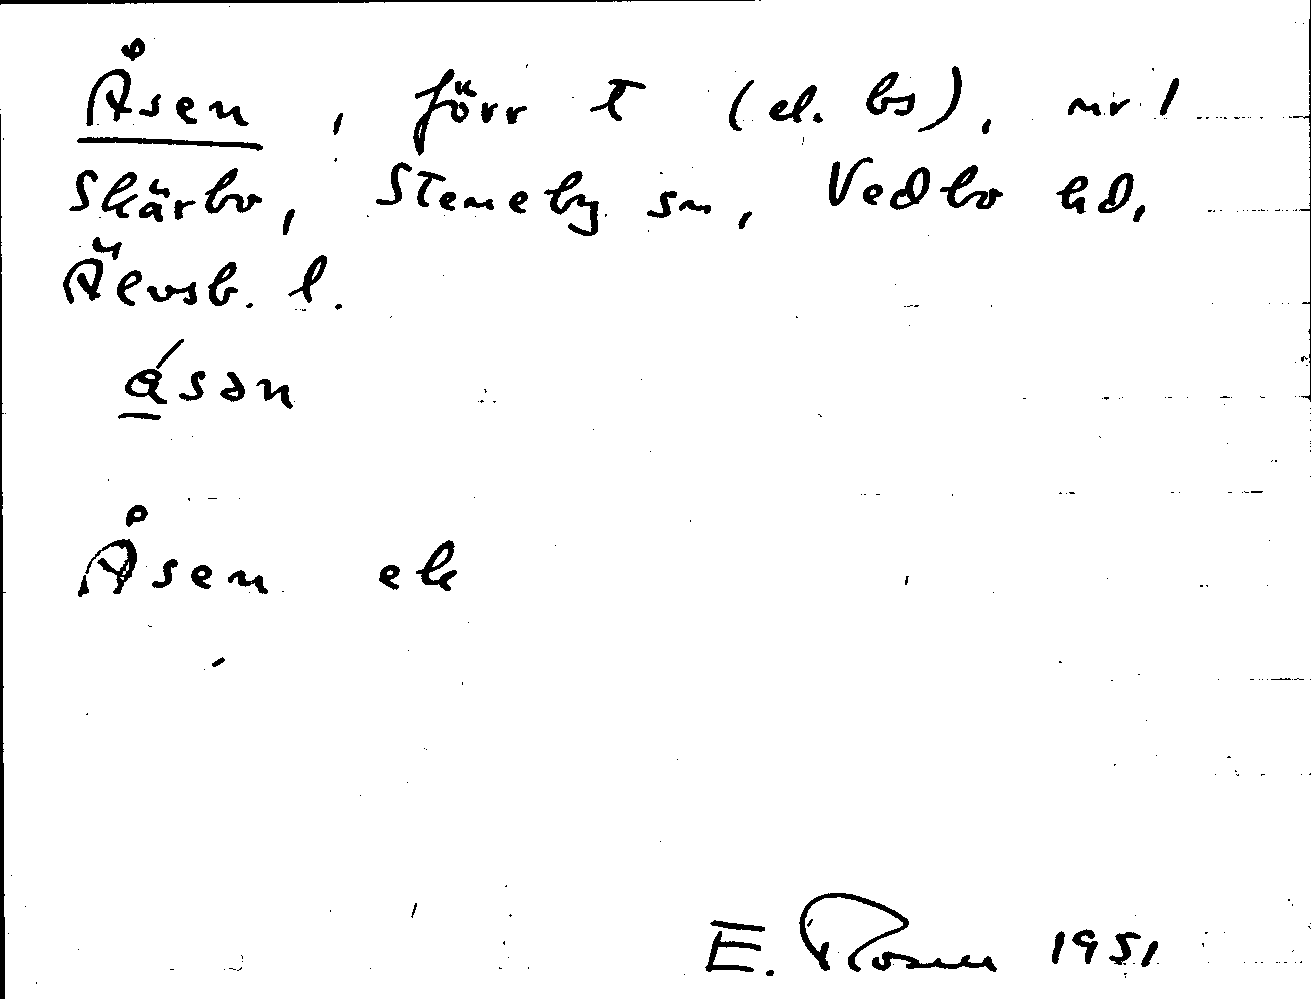 Åsen, förr t (el. bs), nr 1
Skärbo, Steneby sn, Vedbo hd,
Älvsb. l.
ǻsən
Åsen ek
E. Rosen 1951